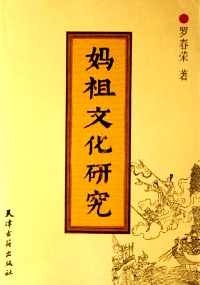 罗春荣 著
妈祖文化研究
天津古籍出版社